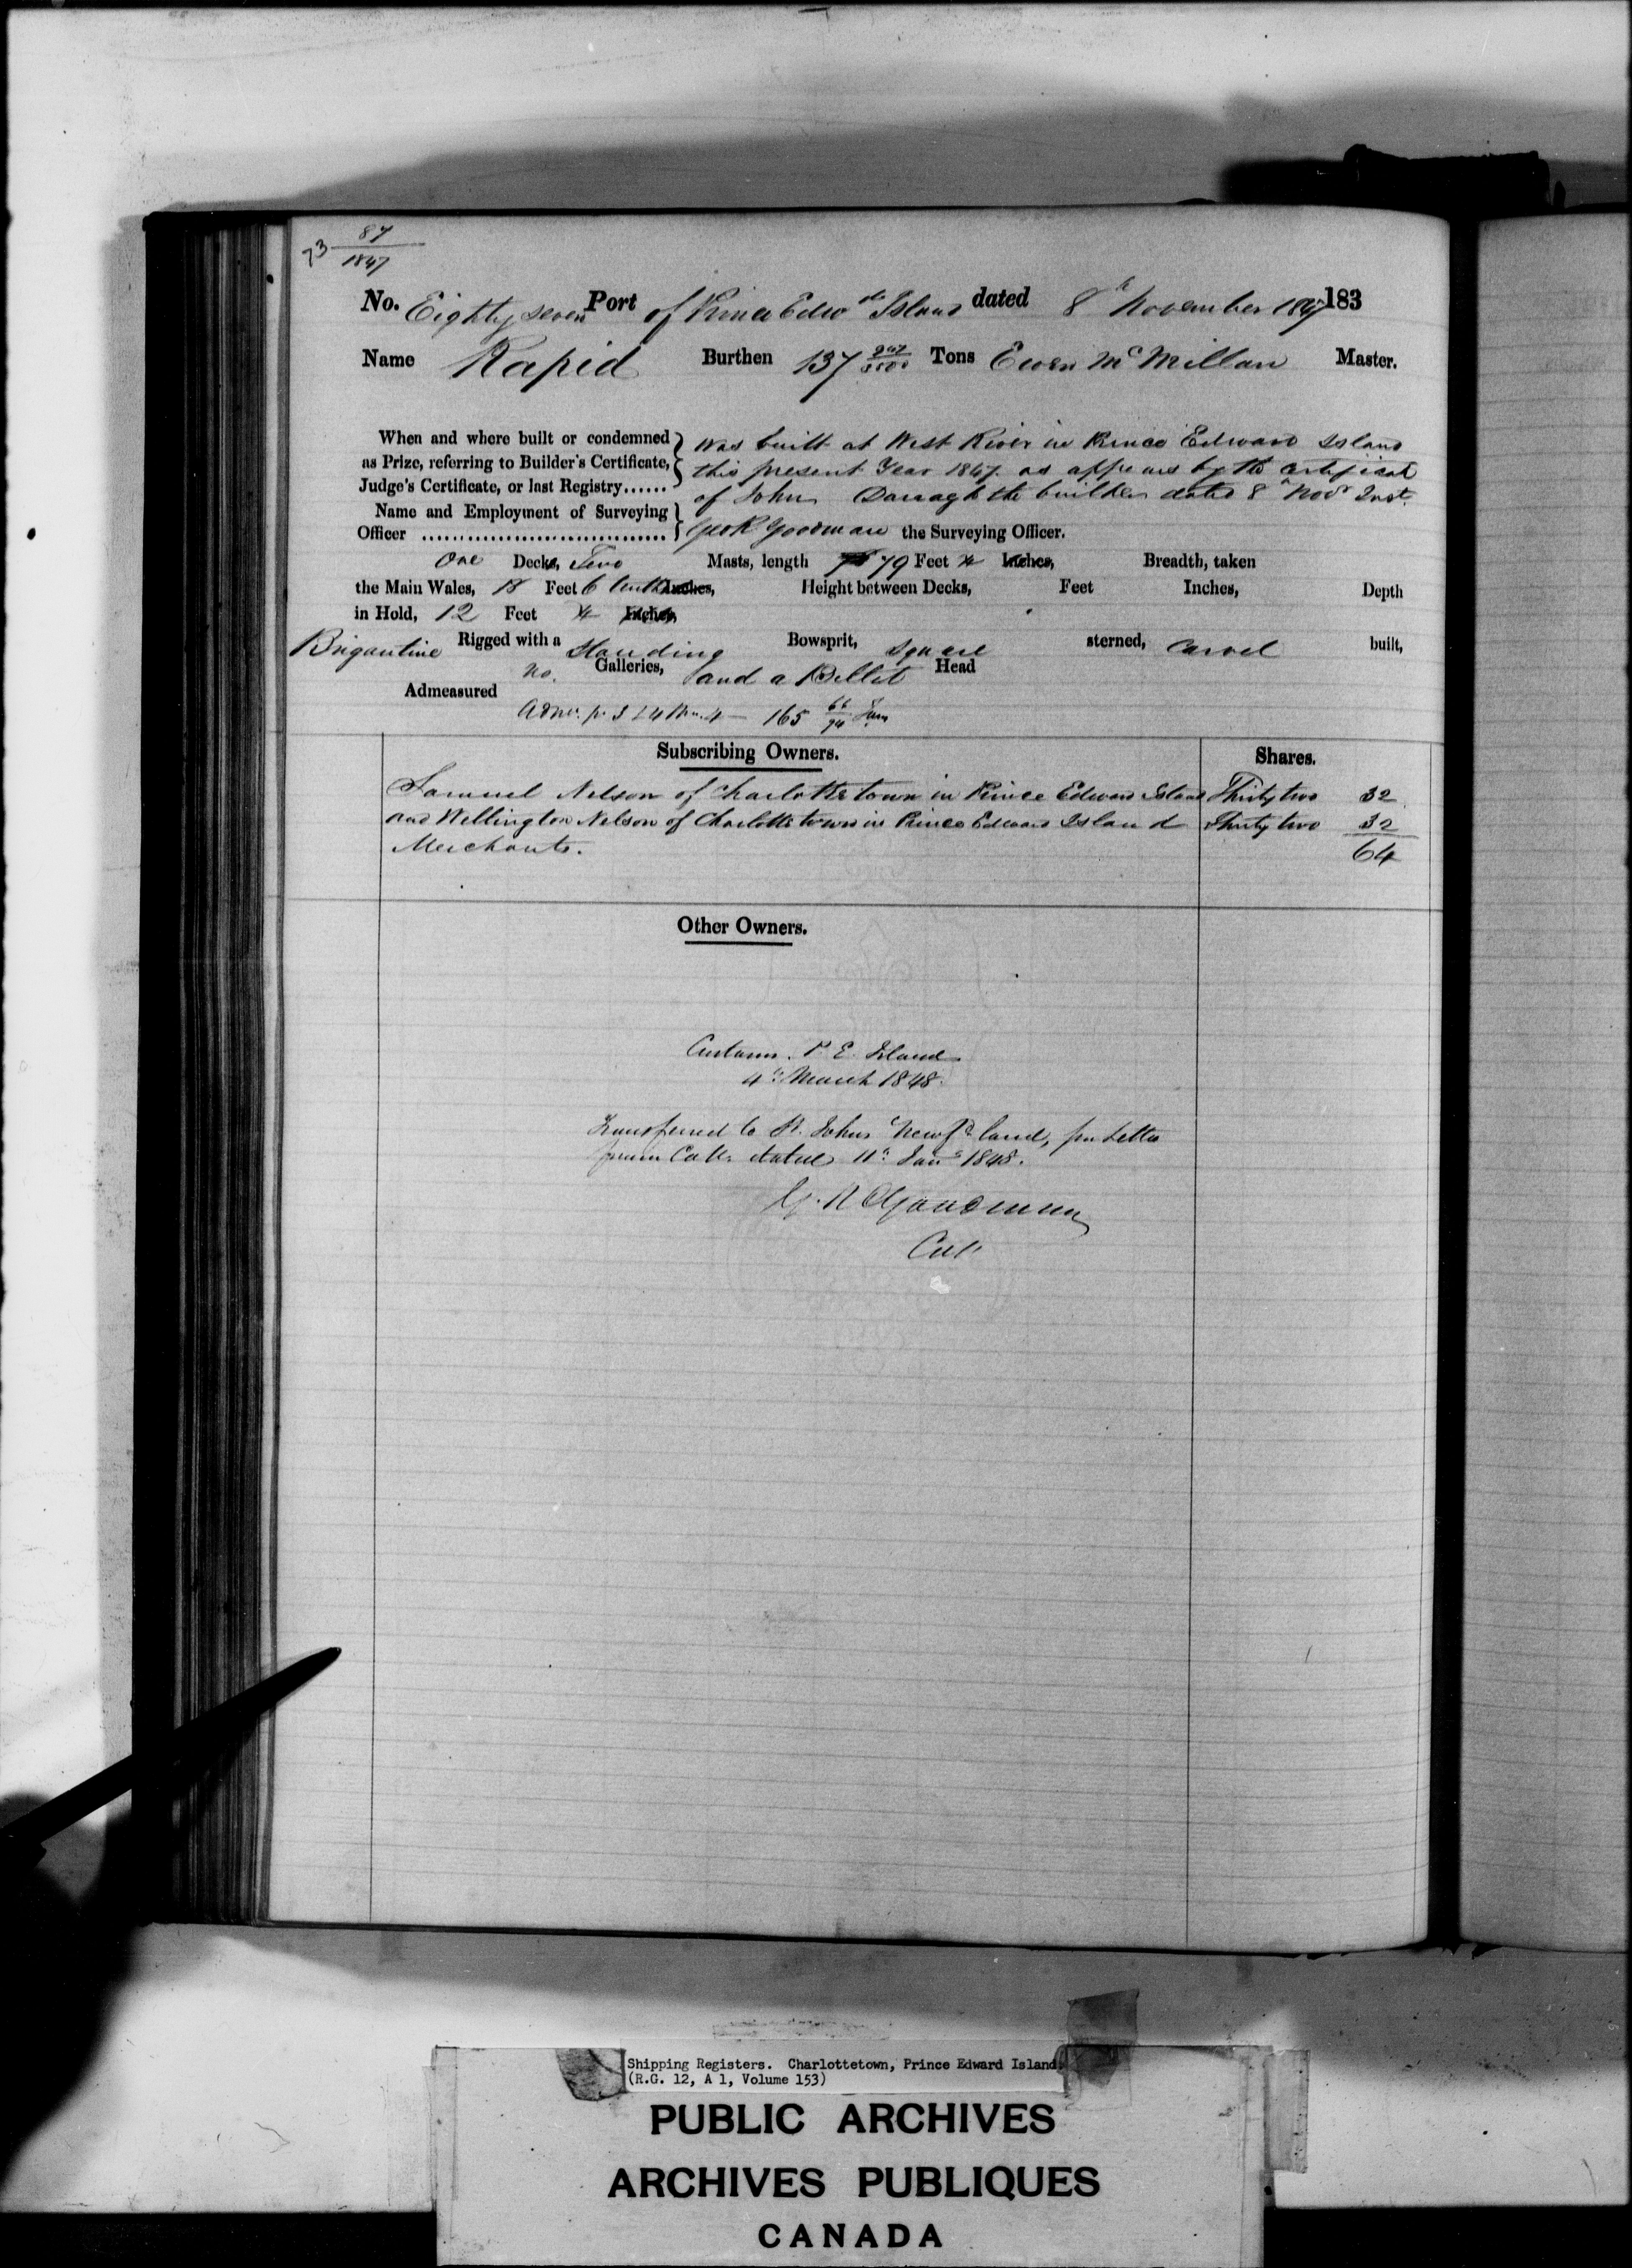 73 87/1847
No. Eighty seven Port of Prince Edwd Island dated 8th November 1847 183
Name Rapid Burthen 137 947/3500 Tons Ewen McMillan Master.
When and where built or condemned was built at West River in Prince Edward Island
as Prize, referring to Builder's Certificate, this present Year 1847 as appears by the certificate
Judge's Certificate, or last Registry...... of John Darragh the builder dated 8th Novr Inst.
Name and Employment of Surveying
Officer ................................ Geo R Goodman the Surveying Officer.
One Decks, Two Masts, length 79 Feet 4 Inches, Breadth, taken
the Main Wales, 18 Feet 6 tenths Inches, Height between Decks, Feet Inches, Depth
in Hold, 12 Feet 4 Inches,
Brigantine Rigged with a Standing Bowsprit, Square sterned, Carvel built,
no. Galleries, and a Billet Head
Admeasured
165 66/94
Subscribing Owners. Shares.
Samuel Nelson of Charlottetown in Prince Edward Island Thirty two 32
and Wellington Nelson of Charlottetown in Prince Edward Island Thirty two 32
Merchants. 64
Other Owners.
Customs. P. E. Island
4th March 1848.
Transferred to St. Johns Newfdland, per Letter
from dated 11th Jany 1848.
G. R Goodman
Shipping Registers. Charlottetown, Prince Edward Island.
(R.G. 12, A 1, Volume 153)
PUBLIC ARCHIVES
ARCHIVES PUBLIQUES
CANADA